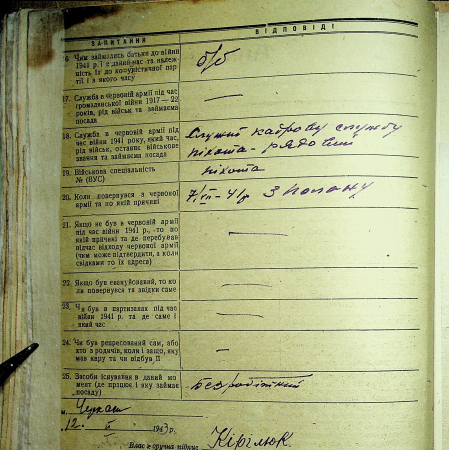 ЗАПИТАННЯ ВІДПОВІДІ
16 Чим займались батьки до війни
1941 р. і в даний час та належ-
ність їх до комуністичної пар-
тії і з якого часу б/б
17. Служба в Червоній армії під час
громадянської війни 1917—22
років, рід військ та займаєма
посада —
18. Служба в червоній армії під час
війни 1941 року, який час,
рід військ, останнє військове
звання та займаєма посада
Служив кадрову службу
піхота - рядовий
19. Військова спеціальність
№ (ВУС) піхота
20. Коли повернувся з червоної
армії та по якій причині З полону
21. Якщо не був в червоній армії
під час війни 1941 р., -то по
якій причині та де перебував
підчас відходу червоної армії
(чим може підтвердити, а коли
свідками то їх адреса) —
22. Якщо був евакуйований, то ко
ли повернувся та звідки саме —
23. Чи був в партизанах під час
війни 1941 р. та де саме і
який час —
24. Чи був репресований сам, або
хто з родичів, коли і защо, яку
мав кару та чи відбув її —
25. Засоби існування в даний мо
мент (де працює і яку займає
посаду) Безробітний
м.
12. II 1943 р.
Власноручна підпис Кірглюк